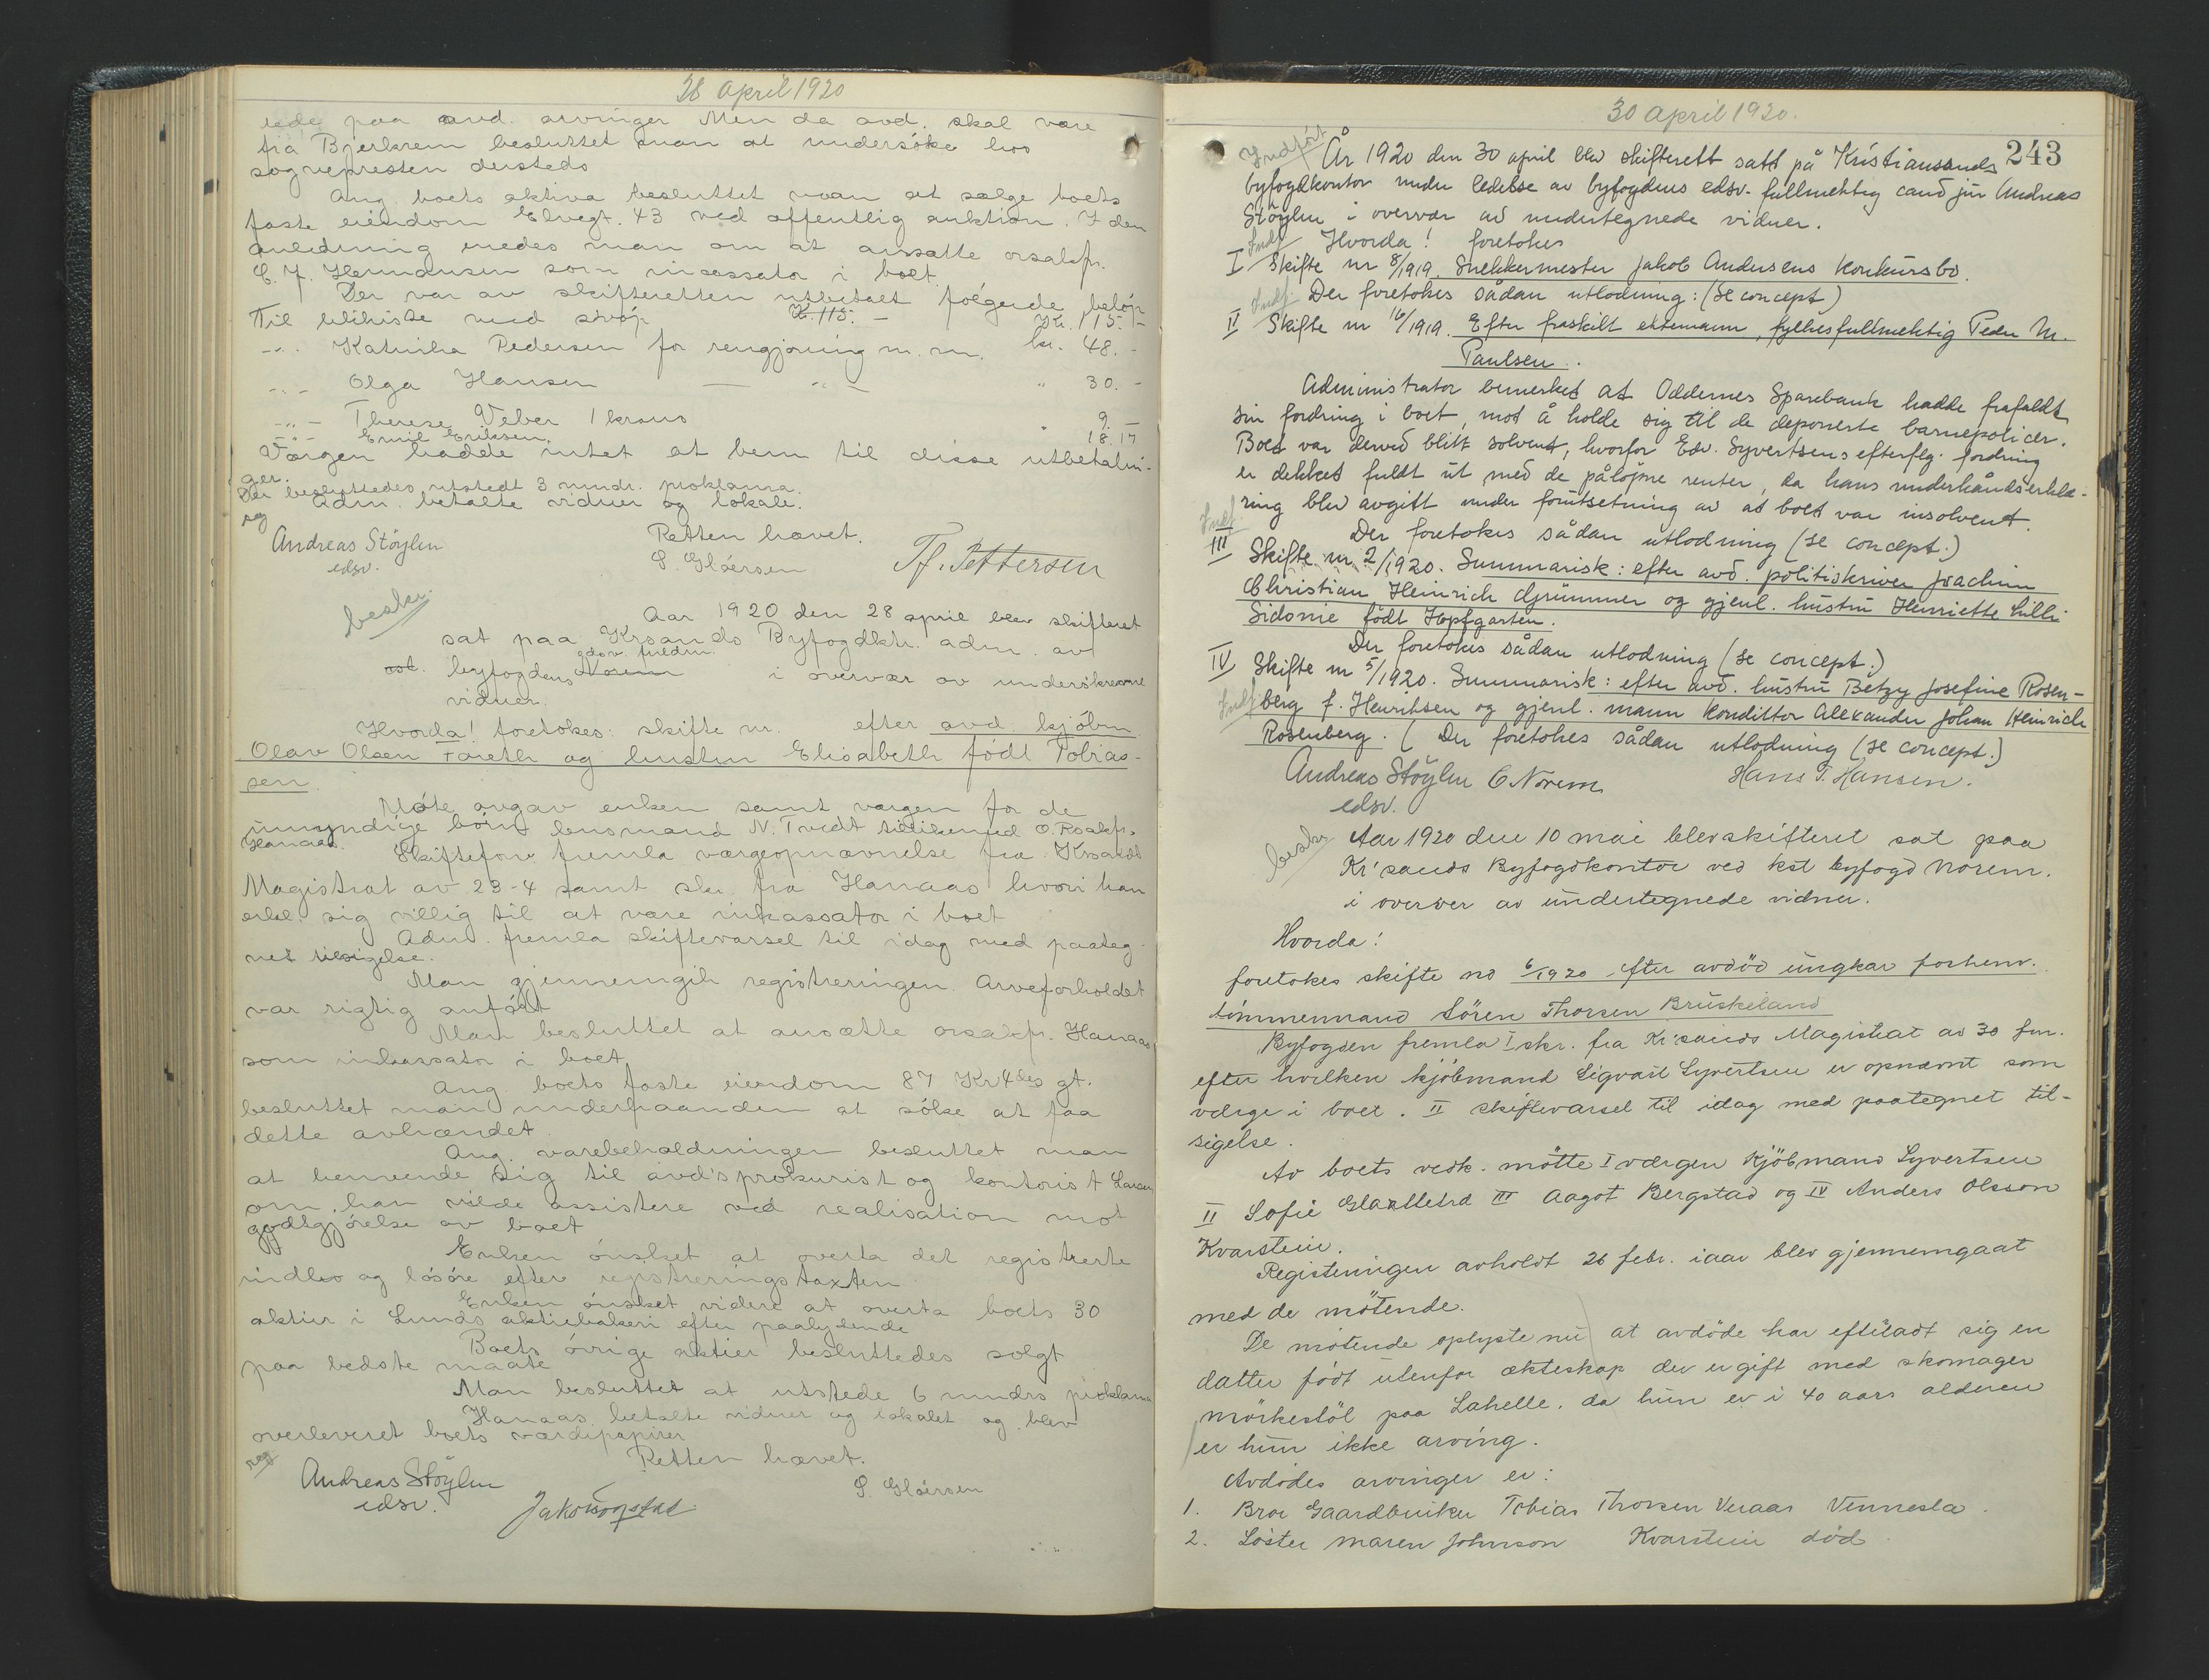 28 April 1920
paa avd. arvinger Men da avd. skal være
fra Bjerkrem besluttet man at undersöke hos
sognepresten dersteds
Ang boets aktiva besluttet man at sælge boets
faste eiendom Elvegt. 43 ved offentlig auktion. I den
anledning enedes man om at ansætte orsakfr.
C. F. Hermansen som incassator i boet.
Der var av skifteretten utbetalt fölgende belöp
Til likkiste med svöp Kr. 115. - Kr. 115. -
-"- Katrika Pedersen for rengjöring m. m. kr. 48. -
-"- Olga Hansen — " — " 30. -
-"- Therese Veber 1 krans 9. -
-"- Emil Eriksen " 18.17
Værgen hadde intet at bem til disse utbetalin-
ger.
Der besluttedes utstedt 3 mndr. proklama.
Adm. betalte vidner og lokale.
reg
Retten hævet.
Andreas Stöylen S. Glöersen Tf. Pettersen
edsv.
beskr.
Aar 1920 den 28 april blev skifteret
sat paa Krsands Byfogdktr. adm. av
edsv. fuldm.
byfogdens Norem i overvær av underskrevne
vidner.
Hvorda! foretokes: skifte nr. efter avd. kjöbm
Olav Olsen Fareth og hustru Elisabeth födt Tobias-
sen.
Möte avgav enken samt værgen for de
umyndige börn lensmand N. Tvedt tillikemed O. Rsakfr.
Hanaas. Skifteforv. fremla værgeopnævnelse fra Krsands
Magistrat av 23-4 samt skr. fra Hanaas hvori han
erkl. sig villig til at være inkassator i boet
Adm. fremla skiftevarsel til idag med paateg
net tilsigelse.
Man gjennemgik registreringen. Arveforholdet
var rigtig anfört
Man besluttet at ansætte orsakfr. Hanaas
som inkassator i boet
Ang. boets faste eiendom 87 Kr 4des gt.
besluttet man underhaanden at söke at faa
dette avhændet.
Ang. varebeholdningen besluttet man
at henvende sig til avd's prokurist og kontorist Larsen
om han vilde assistere ved realisation mot
godtgjörelse av boet
Enken önsket at overta det registrerte
indbo og lösöre efter registreringstaxten
Enken önsket videre at overta boets 30
aktier i Lunds aktiebakeri efter paalydende
Boets övrige aktier besluttedes solgt
paa bedste maate
Man besluttet at utstede 6 mndrs proklama
Hanaas betalte vidner og lokalet og blev
overleveret boets værdipapirer
reg
Retten hævet.
Andreas Stöylen S. Glöersen
edsv.
30 April 1920.
243
Indfört
År 1920 den 30 april blev skifterett satt på Kristiansands
byfogdkontor under ledelse av byfogdens edsv. fullmektig cand jur Andreas
Stöylen i overvær av undertegnede vidner.
Indf Hvorda! foretokes
I Skifte nr 8/1919. Snekkermester Jakob Andersens konkursbo.
Indf. Der foretokes sådan utlodning: (se concept)
II Skifte nr 16/1919. Efter fraskilt ektemann, fylkesfullmektig Peder M.
Paulsen.
Administrator bemerket at Oddernes Sparebank hadde frafaldt
sin fordring i boet, mot å holde sig til de deponerte barnepolicer.
Boet var derved blitt solvent, hvorfor Edv. Syvertsens efterflg. fordring
er dekket fuldt ut med de påløpne renter, da hans underhåndserklæ-
ring blev avgitt under forutsetning av at boet var insolvent.
Indf. Der foretokes sådan utlodning (se concept.)
III Skifte nr. 2/1920. Summarisk: efter avd. politiskriver Joachim
Christian Heinrich Grümmer og gjenl. hustru Henriette Lilli
Sidonie födt Hopfgarten.
Der foretokes sådan utlodning (se concept.)
IV Skifte nr 5/1920. Summarisk: efter avd. hustru Betzy Josefine Rosen-
Indf berg f. Henriksen og gjenl. mann konditor Alexander Johan Heinrich
Rosenberg. ( Der foretokes sådan utlodning (se concept.)
Andreas Stöylen C. Norem Hans T. Hansen.
edsv.
beskr
Aar 1920 den 10 mai blev skifteret sat paa
Kr'sands Byfogdkontor ved kst byfogd Norem.
i overvær av undertegnede vidner.
Hvorda!
foretokes skifte no 6/1920 efter avdöd ungkar forhenv.
tömmermand Sören Thorsen Bruskeland
Byfogden fremla I skr. fra Kr'sands Magistrat av 30 f.m.
efter hvilken kjöbmand Sigvart Syvertsen er opnævnt som
værge i boet. II skiftevarsel til idag med paategnet til-
sigelse.
Av boets vedk. mötte I værgen Kjöbmand Syvertsen
II Sofie III Aagot Bergstad og IV Anders Olsson
Kvarstein.
Registeringen avholdt 26 febr. iaar blev gjennemgaat
med de mötende.
De mötende oplyste nu at avdöde har efterladt sig en
datter födt utenfor ekteskap der er gift med skomager
Mörkestöl paa Lahelle. da hun er i 40 aars alderen
er hun ikke arving.
Avdödes arvinger er:
1. Bror Gaardbruker Tobias Thorsen Veraas Vennesla.
2. Söster Maren Johnson Kvarstein död